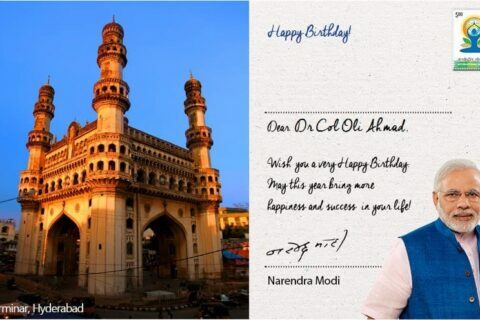 Happy Birthday!
5.00
Dear Dr Col Oli Ahmad,
Wish you a very Happy Birthday.
May this year bring more
happiness and success in your life!
नरेन्द्र मोदी
Narendra Modi
rminar, Hyderabad